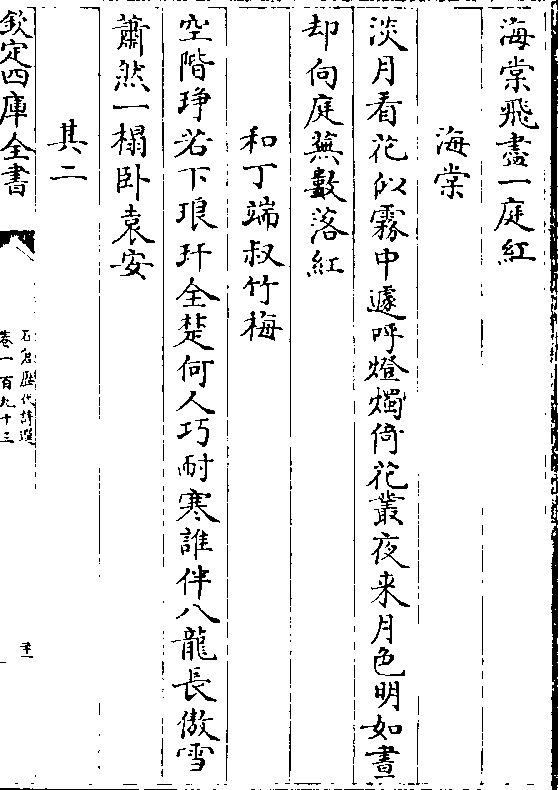 海棠飛盡一庭紅
海棠
淡月看花似霧中遽呼燈燭倚花叢夜来月色明如晝
却向庭蕪數落紅
和丁端叔竹梅
空階琤若下琅玕全楚何人巧耐寒誰伴八龍長傲雪
蕭然一榻卧袁安
其二
欽定四庫全書
石倉歴代詩選
卷一百九十三